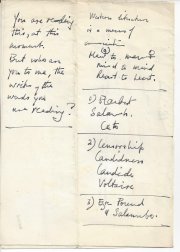 You are reading
this, at this
moment.
But who are
you to me, the
writer of the
words you
are reading?
Written literature
is a means of
Man to man
mind to mind
heart to heart.
1) Flaubert
Salamb.
2) Censorship
Candidness
Candide
Voltaire
3) Eye Friend
& Salambo.